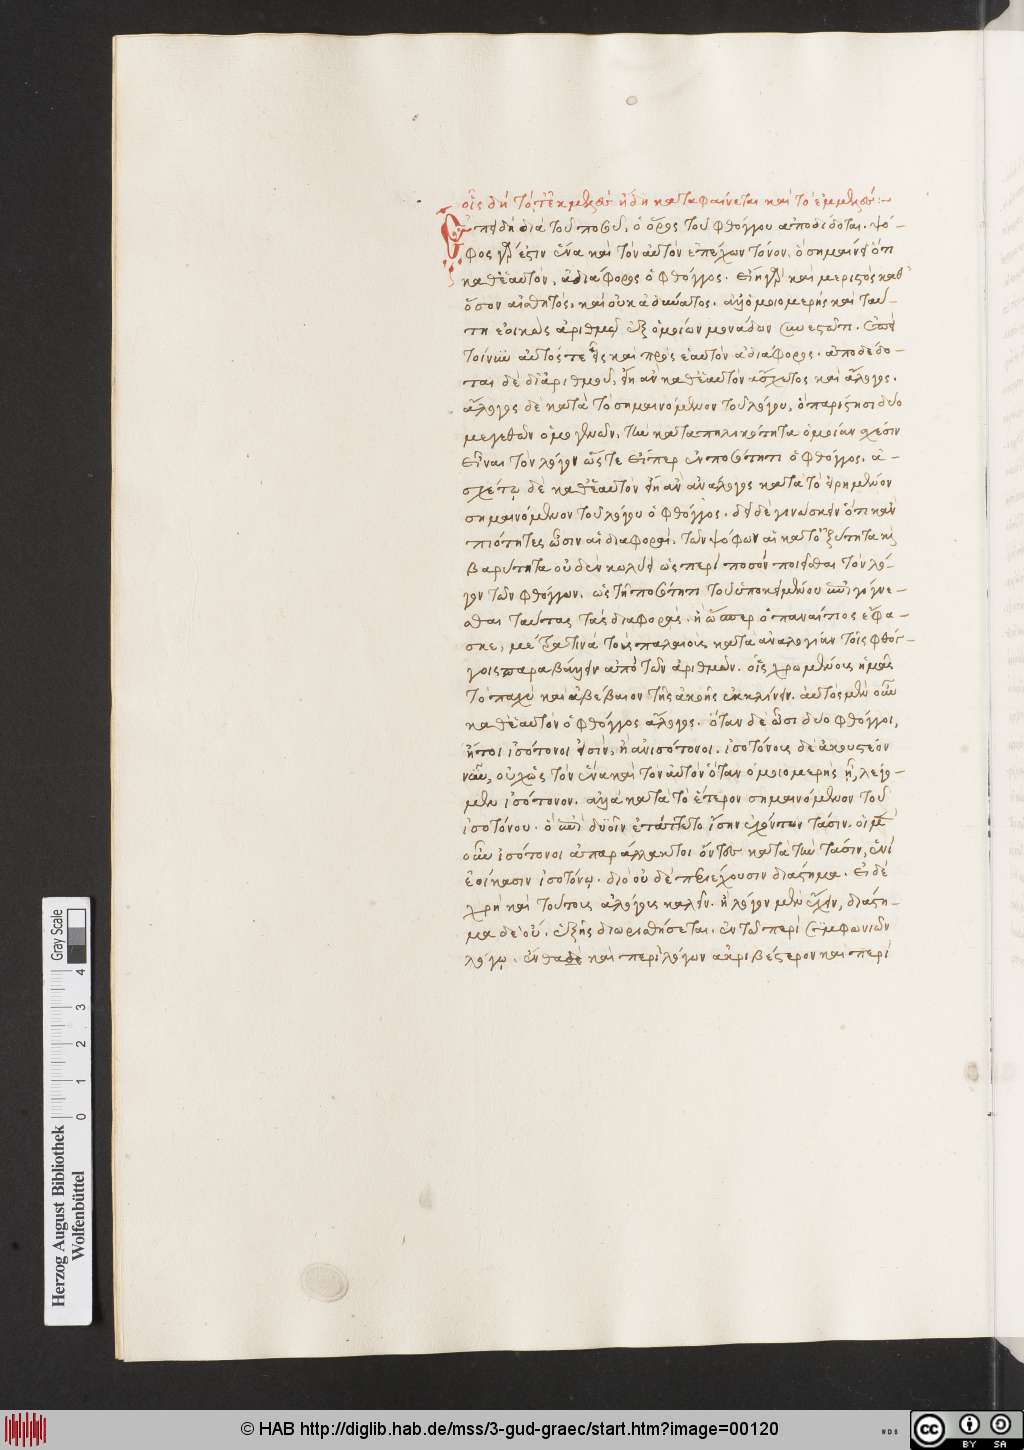 οἷς δὴ τό τε ἐκμελὲς ἤδη καταφαίνεται καὶ τὸ ἐμμελές :—
Ἐπειδὴ διὰ τοῦ ποσοῦ, ὁ ὅρος τοῦ φθόγγου ἀποδίδοται. ψό-
φος γάρ ἐστιν ἕνα καὶ τὸν αὐτὸν ἐπέχων τόνον. ὁ σημαίνει ὅτι
καθ' ἑαυτὸν, ἀδιάφορος ὁ φθόγγος. εἴη γὰρ καὶ μεριστὸς καθ'
ὅσον αἰσθητός, καὶ οὐκ ἀδιαίρετος. ἀλλ' ὁμοιομερὴς καὶ ταύ-
τῃ ἐοικὼς ἀριθμῷ ἐξ ὁμοίων μονάδων συνεστῶτι. ἐπεὶ
τοίνυν αὐτός τε εἷς καὶ πρὸς ἑαυτὸν ἀδιάφορος. ἀποδέδο-
ται δὲ δι' ἀριθμοῦ, εἴη ἂν καθ' ἑαυτὸν ἄσχετος καὶ ἄλογος.
ἄλογος δὲ κατὰ τὸ σημαινόμενον τοῦ λόγου, ὃ παρίστησι δύο
μεγεθῶν ὁμογενῶν, τὴν κατὰ πηλικότητα ὁμοίαν σχέσιν
εἶναι τὸν λόγον ὥστε εἴπερ ἐν ποσότητι ὁ φθόγγος. ἀ-
σχέτῳ δὲ καθ' ἑαυτὸν εἴη ἂν ἀνάλογος κατὰ τὸ εἰρημένον
σημαινόμενον τοῦ λόγου ὁ φθόγγος. δεῖ δὲ γινώσκειν ὅτι κἂν
ποιότητες ὦσιν αἱ διαφοραὶ, τῶν ψόφων αἱ κατ' ὀξύτητα καὶ
βαρύτητα οὐδὲν κωλύει ὡς περὶ ποσὸν ποιεῖσθαι τὸν λό-
γον τῶν φθόγγων. ὡς τῇ ποσότητι τοῦ ὑποκειμένου ἐπιγίγνε-
σθαι ταύτας τὰς διαφοράς. ἢ ὥσπερ ὁ παναίτιος ἔφα-
σκε, μεῖζα τινὰ τοὺς παλαιοὺς κατὰ ἀναλογίαν τοῖς φθόγ-
γοις παραβάλλειν ἀπὸ τῶν ἀριθμῶν. οἷς χρωμένους ἡμᾶς
τὸ παχὺ καὶ ἀβέβαιον τῆς ἀκοῆς ἐκκλίνειν. αὐτὸς μὲν οὖν
καθ' ἑαυτὸν ὁ φθόγγος ἄλογος. ὅταν δὲ ὦσι δύο φθόγγοι,
ἤτοι ἰσότονοι εἰσὶν, ἢ ἀνισότονοι. ἰσοτόνους δὲ ἀκουστέον
νῦν, οὐχ ὡς τὸν ἕνα καὶ τὸν αὐτὸν ὅταν ὁμοιομερὴς ᾖ, λέγο-
μεν ἰσότονον. ἀλλὰ κατὰ τὸ ἕτερον σημαινόμενον τοῦ
ἰσοτόνου. ὃ ἐπὶ δυοῖν ἐτάττετο ἴσην ἐχόντων τάσιν. οἱ μὲν
οὖν ἰσότονοι ἀπαράλλακτοι ὄντες κατὰ τὴν τάσιν, ἑνὶ
ἐοίκασιν ἰσοτόνῳ. διὸ οὐδὲ περιέχουσιν διάστημα. εἰ δὲ
χρὴ καὶ τούτους ἀλόγους καλεῖν. ἢ λόγον μὲν ἔχειν, διάστη-
μα δὲ οὔ. ἑξῆς διορισθήσεται. ἐν τῷ περὶ συμφωνιῶν
λόγῳ. ἔνθα δὲ καὶ περὶ λόγων ἀκριβέστερον καὶ περὶ
Herzog August Bibliothek
Wolfenbüttel
0 1 2 3 4
Gray Scale
© HAB http://diglib.hab.de/mss/3-gud-graec/start.htm?image=00120
WDB
cc BY SA